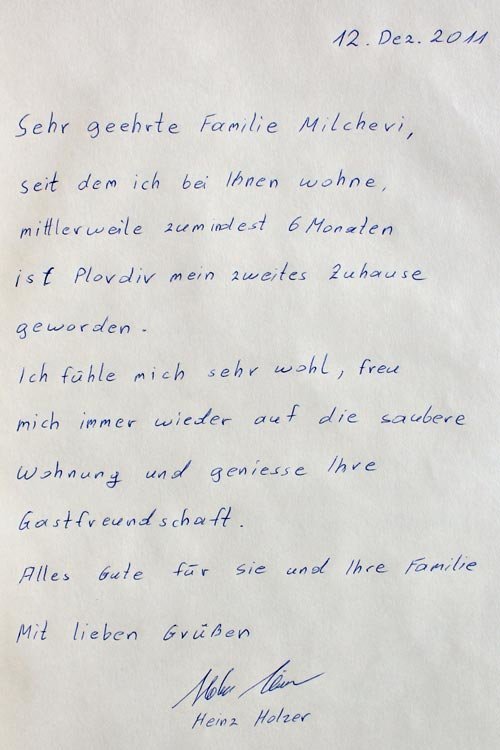 12. Dez. 2011
Sehr geehrte Familie Milchevi,
seit dem ich bei Ihnen wohne,
mittlerweile zumindest 6 Monaten
ist Plovdiv mein zweites Zuhause
geworden.
Ich fühle mich sehr wohl, freu
mich immer wieder auf die saubere
Wohnung und geniesse Ihre
Gastfreundschaft.
Alles Gute für sie und Ihre Familie
Mit lieben Grüßen
Heinz Holzer